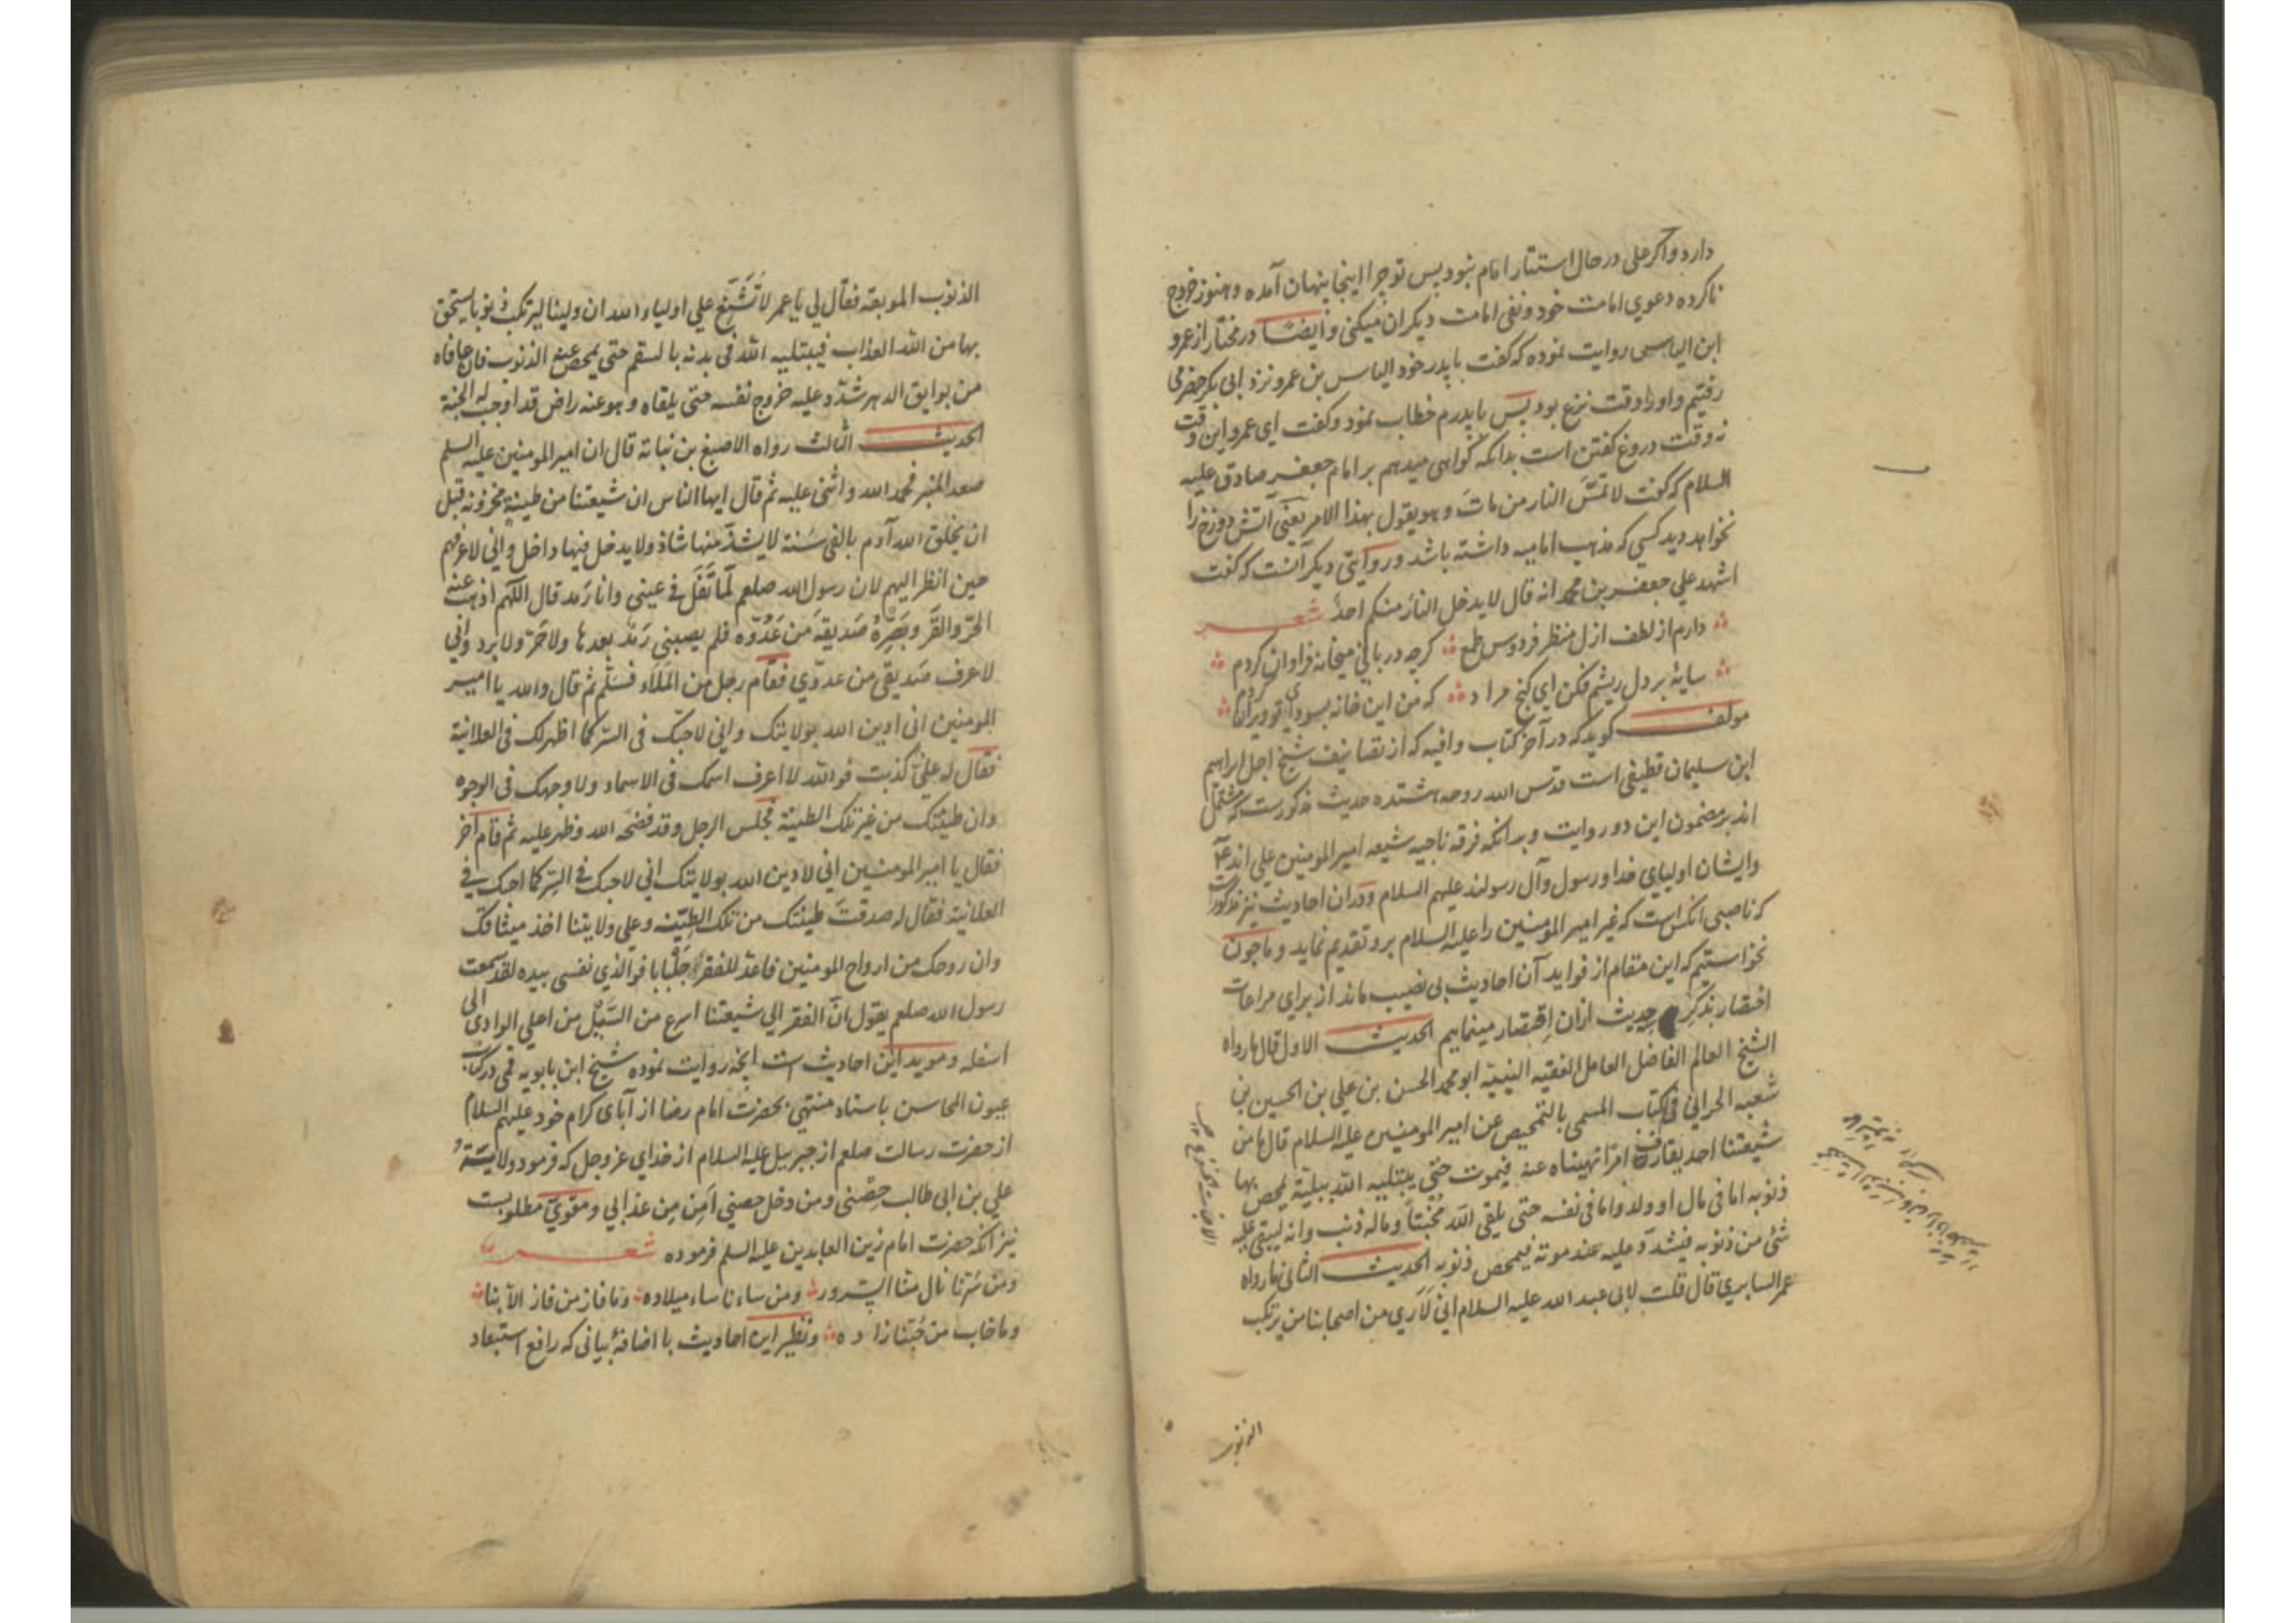 دارد واکر علی در حال استتار امام نبود پس تو چرا اینجا پنهان آمده و هنوز خروج
ناکرده دعوی امامت خود و نفی امامت دیکران میکنی و ایضاً در مختار از عمرو
ابن الیاس روایت نموده که کفت با پدر خود الیاس بن عمرو نزد ابی بکر حضرمی
رفتیم و او را وقت نزع بود پس با پدرم خطاب نمود و کفت ای عمرو این وقت
نه وقت دروغ کفتن است بدانکه کواهی میدهم بر امام جعفر صادق علیه
السلام که کفت لا تمسّ النار من ماتَ و هو یقول بهذا الامر یعنی آتش دوزخ را
نخواهد دید کسی که مذهب امامیه داشته باشد و روایتی دیکر آنست که کفت
اشهد علی جعفر بن محمد انه قال لا یدخل النار منکم احدٌ شعر
دارم از لطف ازل منظر فردوس طمع کرچه دربانی میخانه فراوان کردم
سایهٔ بر دل ریشم فکن ای کنج مراد که من این خانه بسودای تو ویران کردم
مولف کوید که در آخر کتاب وافیه که از تصانیف شیخ اجل ابراهیم
ابن سلیمان قطیفی است قدس الله روحه هشتده حدیث مذکورست که مشتمل
اند بر مضمون این دو روایت و بدانکه فرقه ناجیه شیعه امیر المومنین علی اند
و ایشان اولیای خدا و رسول و آل رسولند علیهم السلام و در ان احادیث نیز مذکورست
که ناصبی انکس است که غیر امیر المومنین را علیه السلام برو تقدیم نماید و ما چون
نخواستیم که این مقام از فواید آن احادیث بی نصیب ماند از برای مراعات
اختصار بذکر حدیث ازان اقتصار مینماییم الحدیث الاول قال ما رواه
الشیخ العالم الفاضل العامل الفقیه النبیه ابو محمد الحسن بن علی بن الحسین بن
شعبه الحرانی فی الکتاب المسمی بالتمحیص عن امیر المومنین علیه السلام قال ما من
شیعتنا احد یقارف امرا نهیناه عنه فیموت حتی یبتلیه الله ببلیة تمحص بها
ذنوبه اما فی مال او ولد و اما فی نفسه حتی یلقی الله مُخْبِتاً و ماله ذنب و انه لیبقی علیه
شئ من ذنوبه فیشدّد علیه عند موته فیمحص ذنوبه الحدیث الثانی ما رواه
عمر السابری قال قلت لابی عبد الله علیه السلام انی لَاَری من اصحابنا من یرتکب
الذنوب
الذنوب الموبقة فقال لی یا عمر لا تُشَنِّع علی اولیاء الله ان ولینا لیرتکب ذنوبا یستحق
بها من الله العذاب فیبتلیه الله فی بدنه بالسقم حتی یمحص عنه الذنوب فان عافاه
من بوایق الدهر شدّد علیه خروج نفسه حتی یلقاه و هو عنه راض قد اوجب له الجنة
الحدیث الثالث رواه الاصبغ بن نباتة قال ان امیر المومنین علیه السلم
صعد المنبر فحمد الله و اثنی علیه ثم قال ایها الناس ان شیعتنا من طینة مخزونه قبل
ان یخلق الله آدم بالفی سَنة لا یشذّ منها شاذ و لا یدخل فیها داخل و انی لاعرفهم
حین انظر الیهم لان رسول الله صلعم لَمّا تَفَلَ فی عینی و انا رَمد قال اللّهم اذهب عنه
الحرّ و القرّ و بَصِّرهُ صَدیقهَ من عَدُوّه فلم یصبنی رَمَد بعدها و لا حَرّ و لا برد و انی
لاعرف صَدیقی من عدوّی فقام رجل من المَلَاء فسَلّم ثم قال و الله یا امیر
المومنین انی ادین الله بولایتک و انی لاحبّک فی السرّ کما اظهر لک فی العلانیة
فقال له علیّ کذبت فو الله لا اعرف اسمک فی الاسماء و لا وجهک فی الوجوه
و ان طینتک من غیر تلک الطینة فجلس الرجل و قد فضحَه الله و ظهر علیه ثم قام آخر
فقال یا امیر المومنین انی لادین الله بولایتک انی لاحبک فی السِرّ کما احبک فی
العلانیة فقال له صدقتَ طینتک من تلک الطینة و علی ولایتنا اخذ میثاقک
و ان روحک من ارواح المومنین فاعدّ للفقر جَلْبابا فو الذی نفسی بیده لقد سمعت
رسول الله صلعم یقول انّ الفقر الی شیعتنا اسرع من السَیْل من اعلی الوادی الی
اسفله و موید این احادیث است انچه روایت نموده شیخ ابن بابویه قمی در کتاب
عیون المحاسن باسناد منتهی بحضرت امام رضا از آبای کرام خود علیهم السلام
از حضرت رسالت صلعم از جبرییل علیه السلام از خدای عز و جل که فرمود ولایتهُ
علی بن ابی طالب حِصْنی و من دخل حصنی آمِن من عذابی و مقوی مطلوبست
نیز انکه حضرت امام زین العابدین علیه السلم فرموده شعر
و من سَرّنا نال منّا السرور و من ساءنا ساء میلاده و ما فاز من فاز الّا بنا
و ما خاب من حُبّنا زاده و نظیر این احادیث با اضافهٔ بیانی که رافع استبعاد